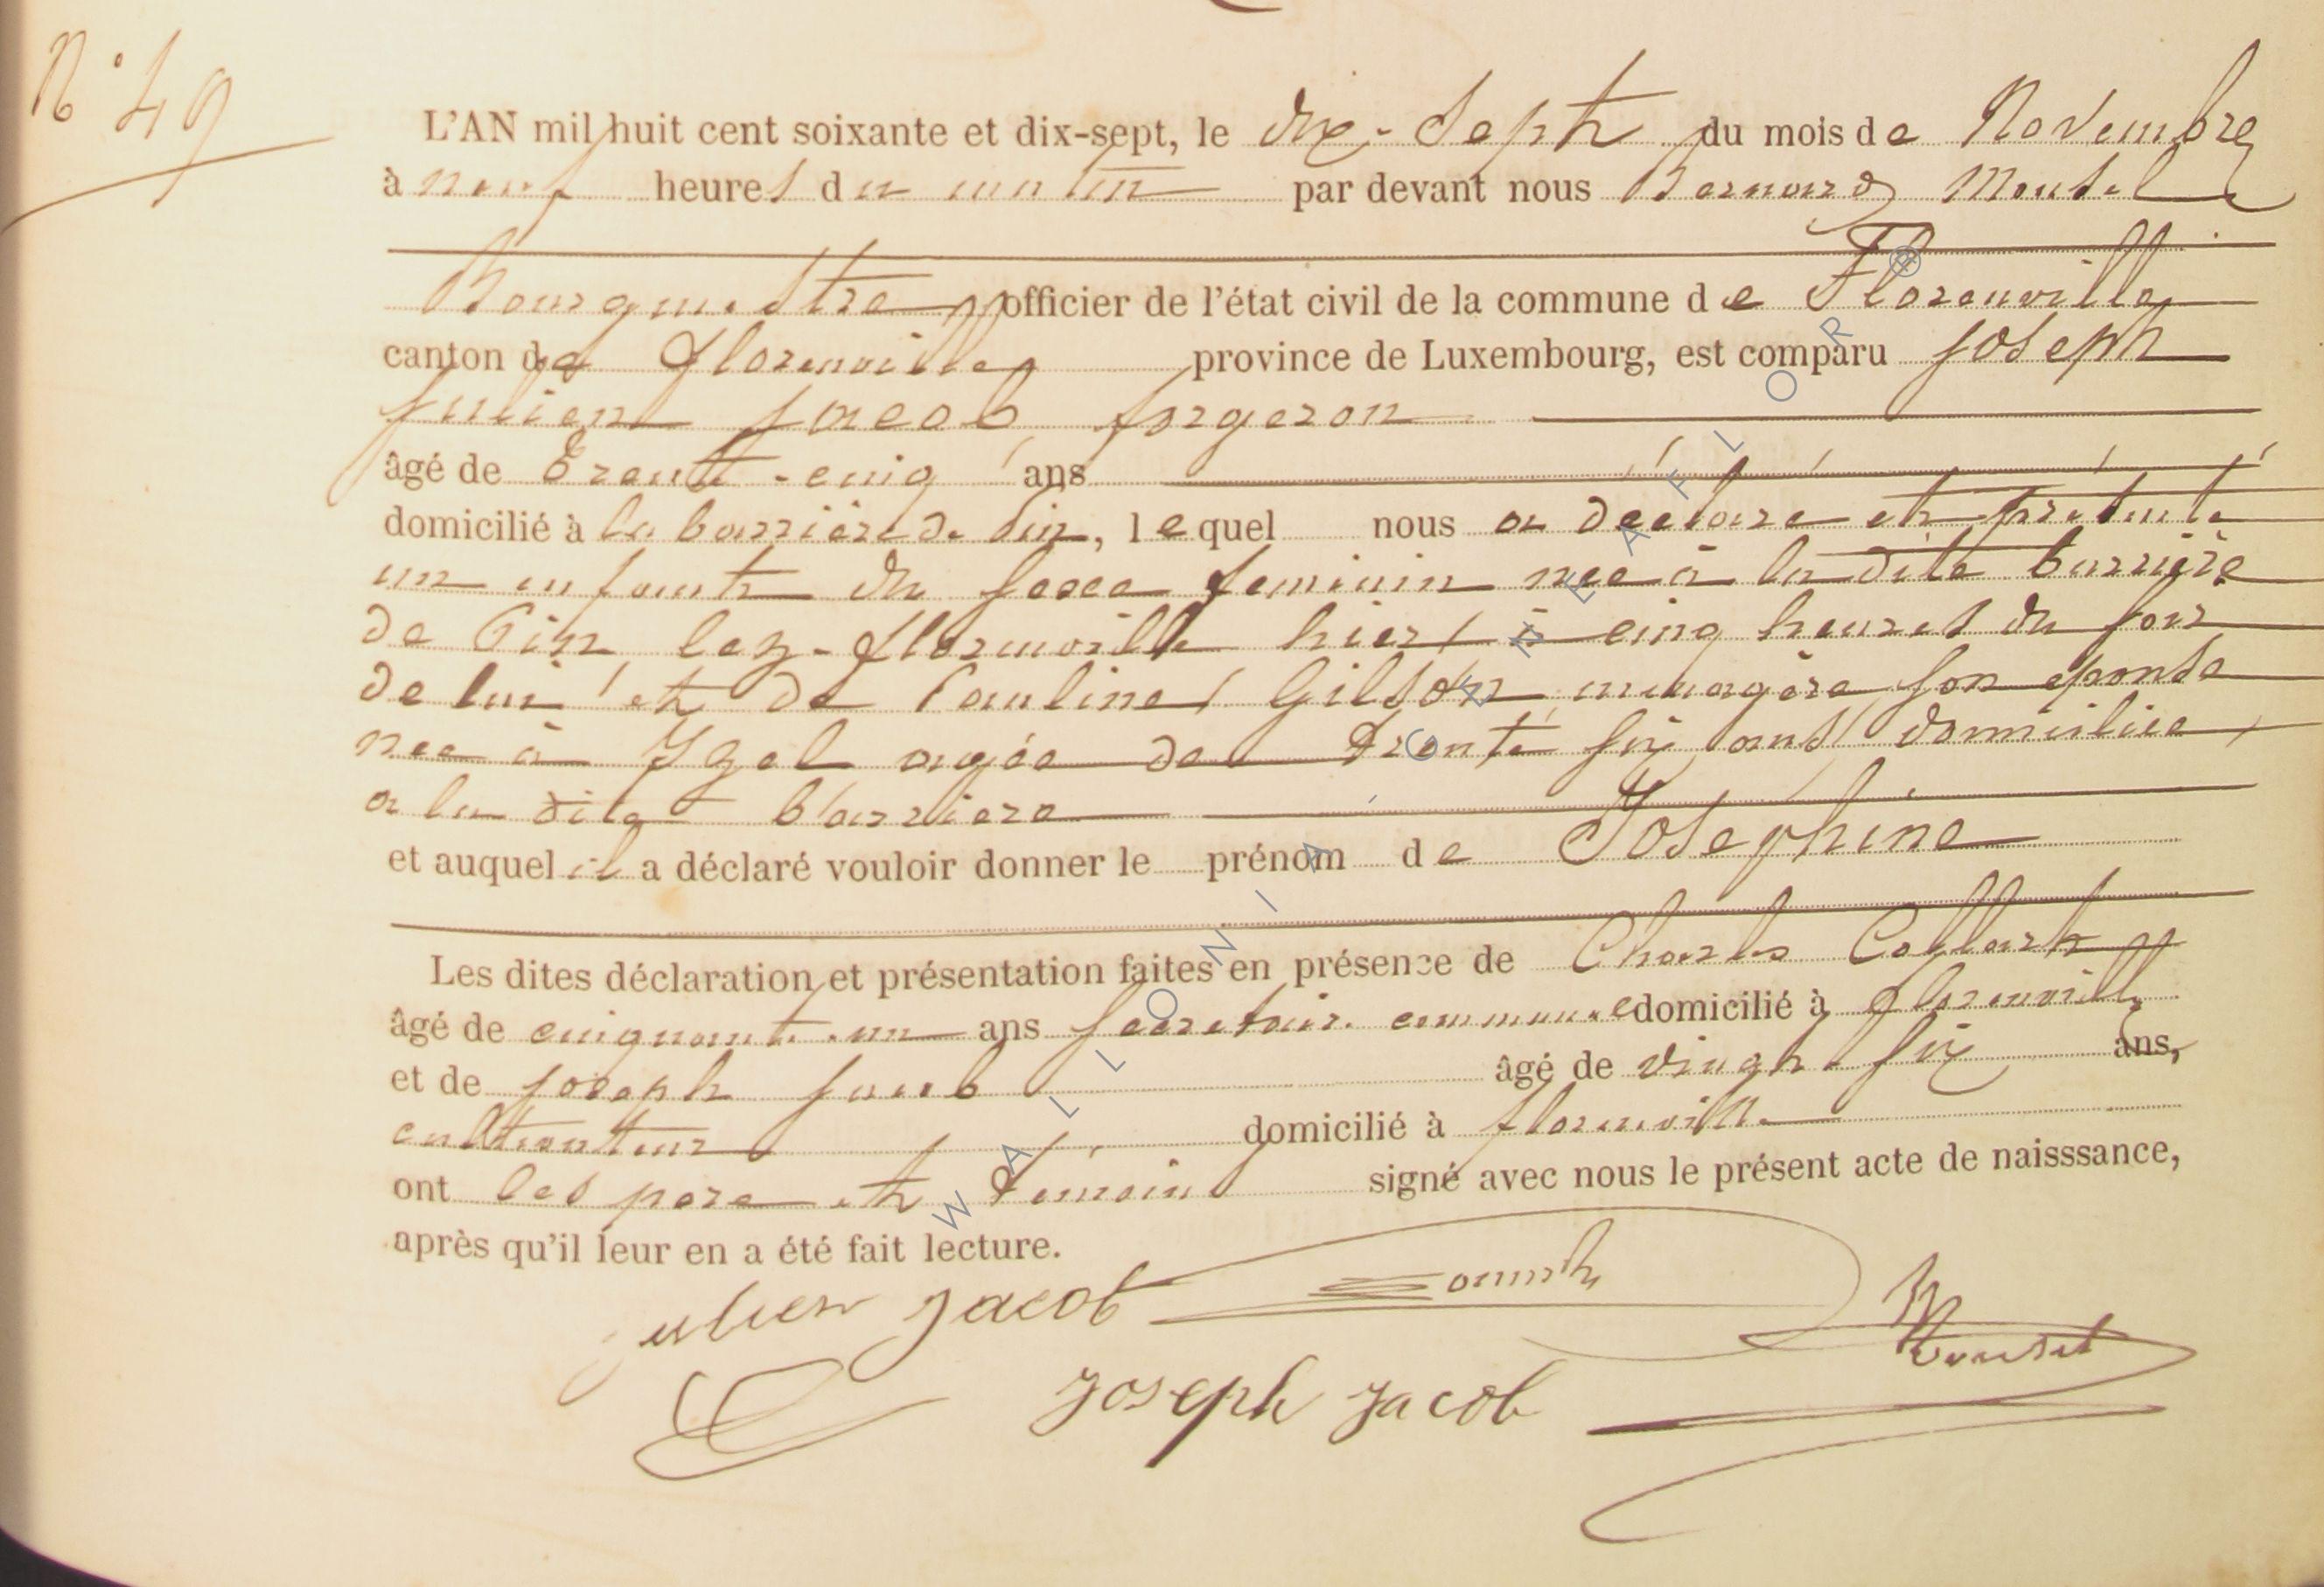 N° 49
L'AN mil huit cent soixante et dix-sept, le dix-sept du mois de Novembre
à neuf heures du matin par devant nous Bernard Mousel
Bourgmestre officier de l'état civil de la commune de Florenville
canton de Florenville province de Luxembourg, est comparu Joseph
Julien Jacob forgeron
âgé de trente-cinq ans
domicilié à la barrière de Pin, lequel nous a déclaré et présenté
un enfant du sexe feminin née à la dite barrière
de Pin lez-florenville hier à cinq heures du soir
de lui et de Pauline Gilson ménagère son épouse
née à Izel agée de trente six ans domiciliée
a la dite barriere
et auquel il a déclaré vouloir donner le prénom de Joséphine
Les dites déclaration et présentation faites en présence de Charles Collart
âgé de cinquante-un ans secrétaire communale domicilié à florenville
et de Joseph Jacob âgé de vingt-six ans,
cultivateur domicilié à florenville
ont les pere et témoins signé avec nous le présent acte de naisssance,
après qu'il leur en a été fait lecture.
Julien Jacob
Joseph Jacob
WALLONIA